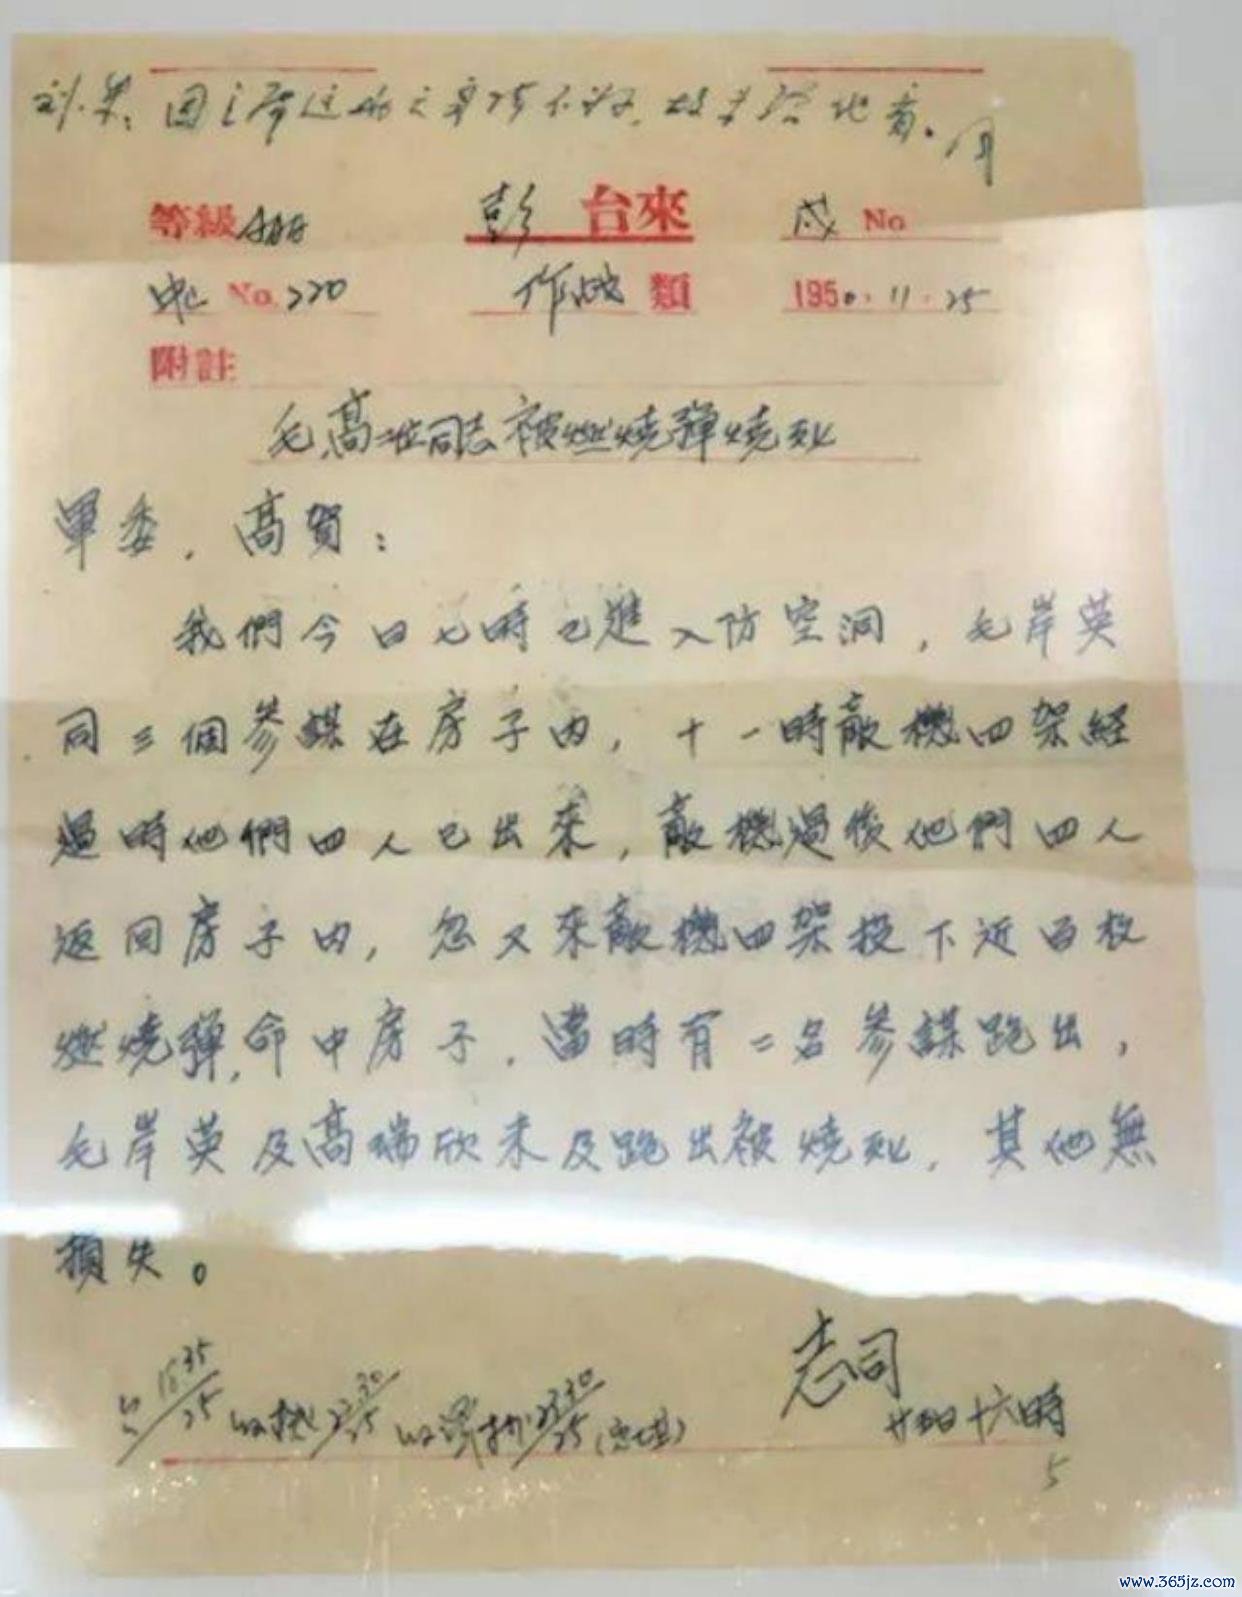 刘、朱:因主席这两天身体不好,故未给他看。周
等級AAAA 彭 台來 成 No
中 No.220 作战 類 1950.11.25
附註
毛、高二位同志被燃燒彈燒死
軍委,高賀:
我們今日七時已進入防空洞,毛岸英
同三個參謀在房子內,十一時敵機四架經
過時他們四人已出來,敵機過後他們四人
返回房子內,忽又來敵機四架投下近百枚
燃燒彈,命中房子,當時有二名參謀跑出,
毛岸英及高瑞欣未及跑出被燒死,其他無
損失。
志司
廿五日十六時
5
www.365jz.com